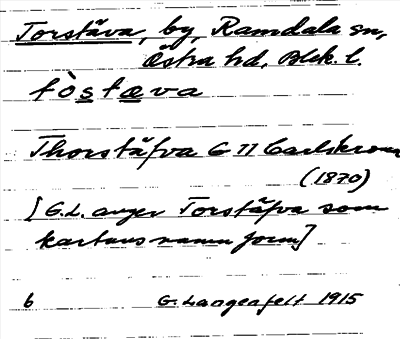 Torstäva, by, Ramdala sn,
Östra hd, Blek. l.
fòstæva
Thorstäfva G 11 Carlskrona
(1870)
[G.L. anger Torstäfva som
kartans namnform]
6 G. Langenfelt 1915